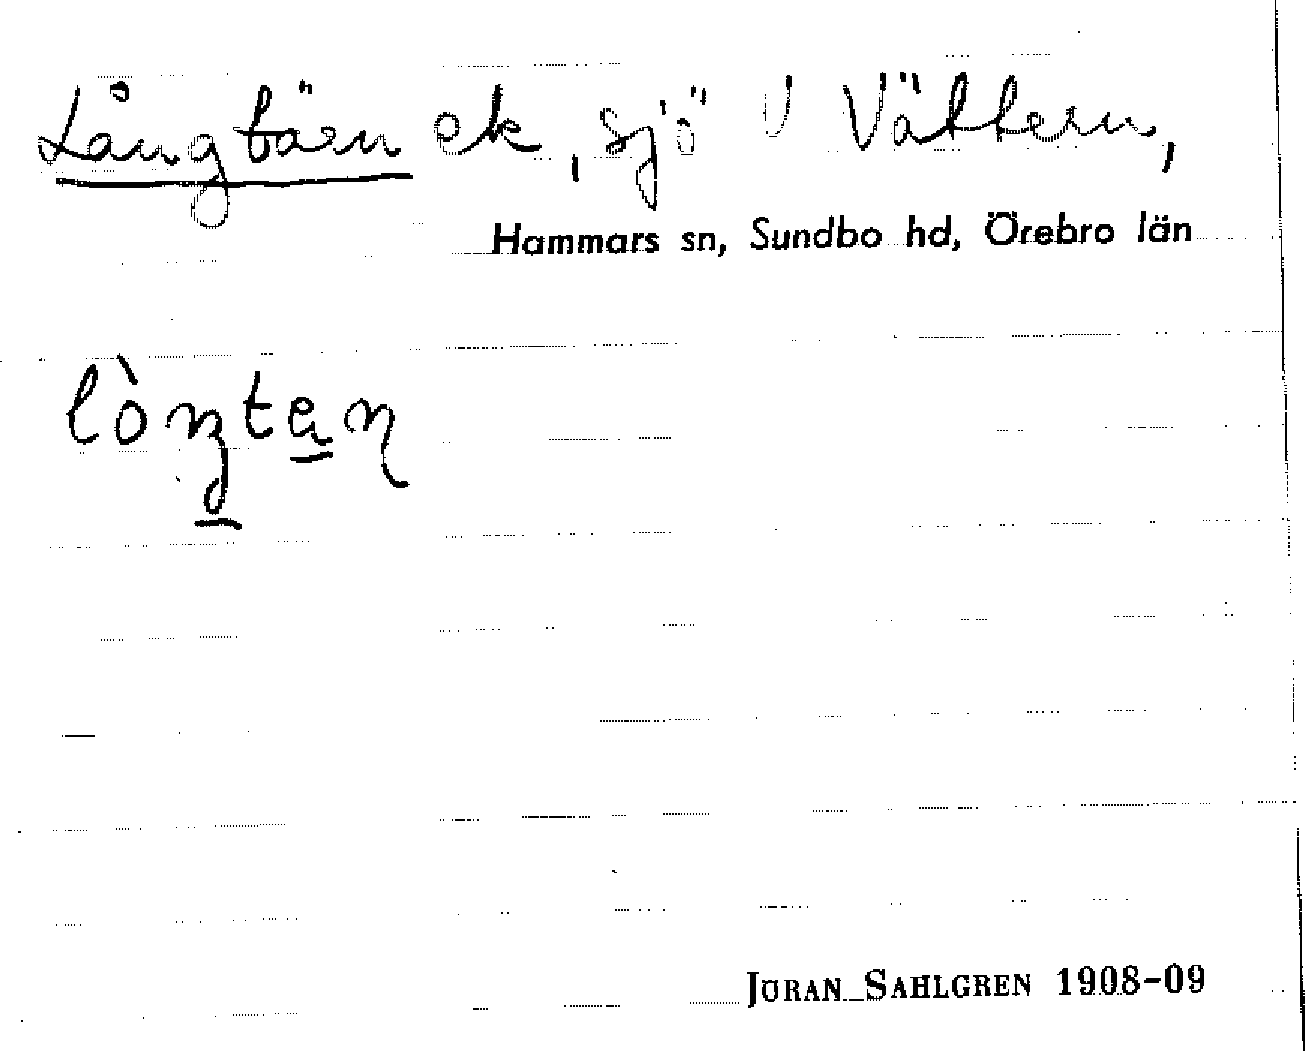 Långtärn ek, sjö V Vättern,
Hammars sn, Sundbo hd, Örebro län
JÖRAN SAHLGREN 1908-09